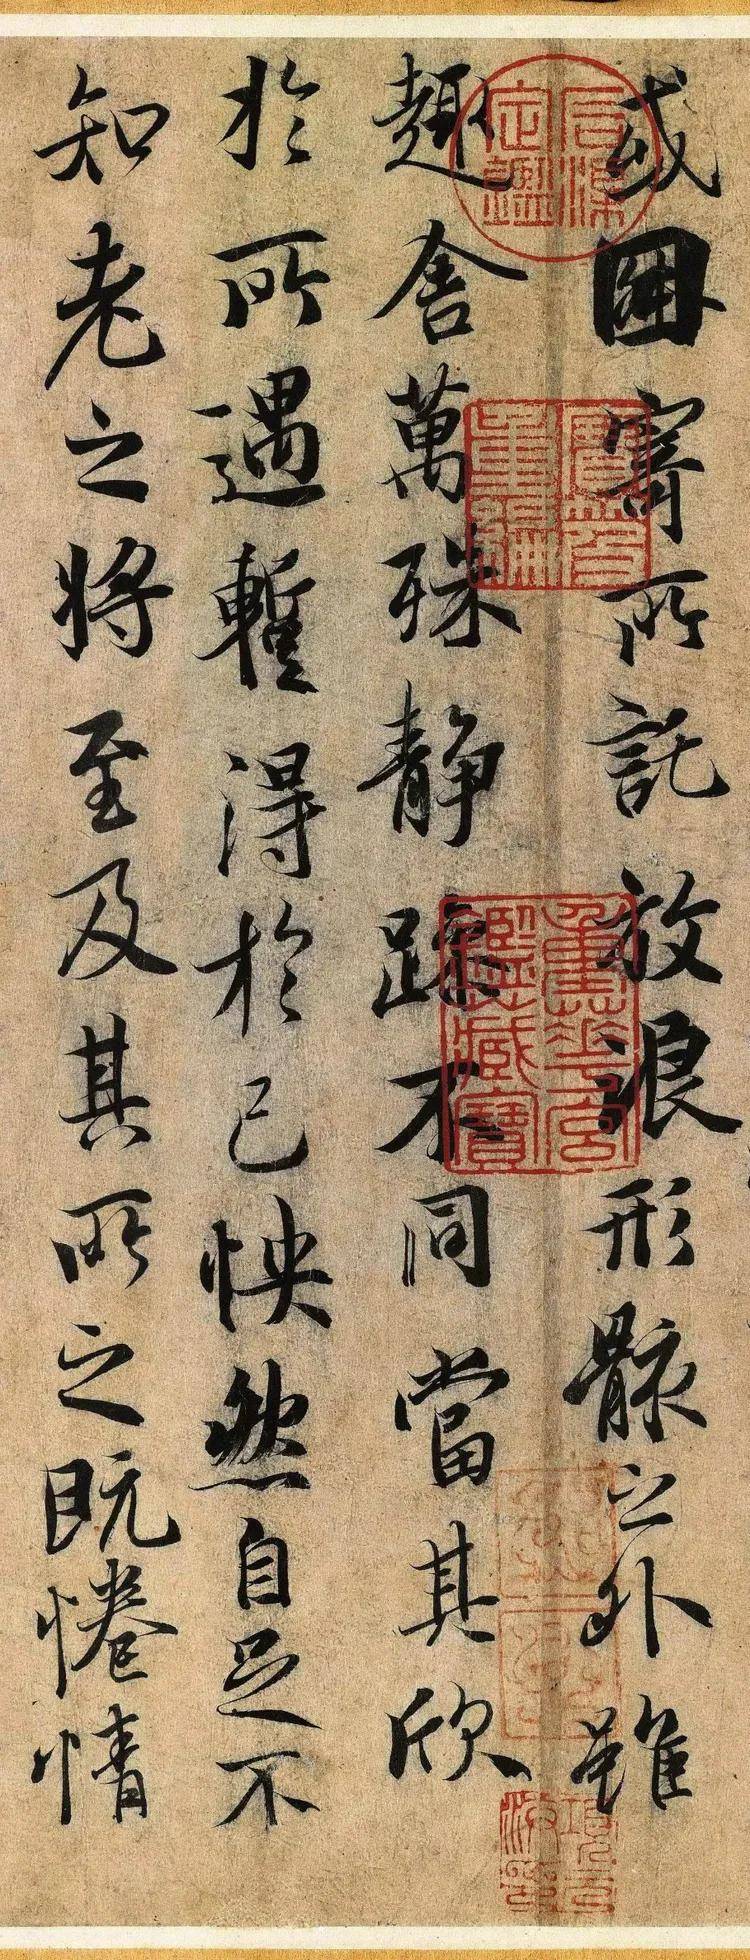 或因寄所託放浪形骸之外雖
趣舍萬殊静躁不同當其欣
於所遇蹔得於己怏然自足不
知老之將至及其所之既惓情
石渠定鑑
寶笈重編
重華宮鑑藏寶